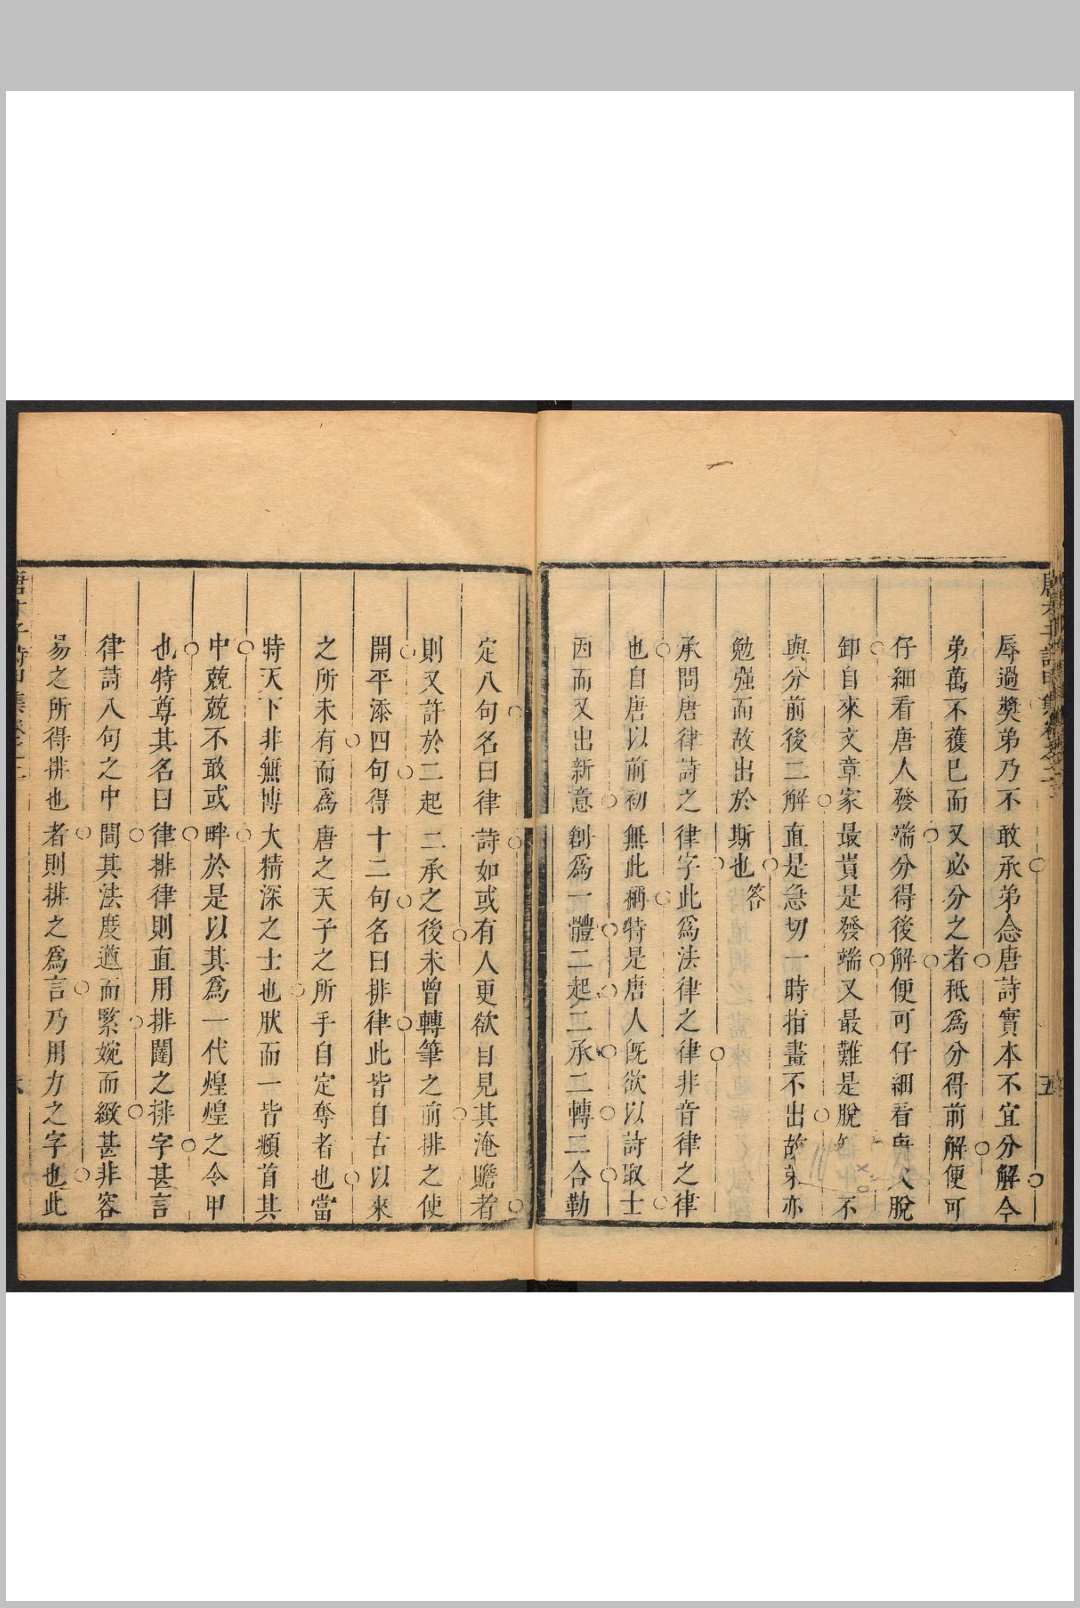 辱過獎弟乃不敢承弟念唐詩實本不宜分解今
弟萬不獲已而又必分之者秪為分得前解便可
仔細看唐人發端分得後解便可仔細看唐人脫
卸自來文章家最貴是發端又最難是脫 不
與分前後二解直是急切一時指畫不出故弟亦
勉强而故出於斯也
答
承問唐律詩之律字此爲法律之律非音律之律
也自唐以前初無此稱特是唐人旣欲以詩取士
因而又出新意創爲一體二起二承二轉二合勒
定八句名曰律詩如或有人更欲自見其淹贍者
則又許於二起二承之後未曾轉筆之前排之使
開平添四句得十二句名曰排律此皆自古以來
之所未有而爲唐之天子之所手自定奪者也當
特天下非無博大精深之士也狀而一皆頫首其
中兢兢不敢或畔於是以其爲一代煌煌之令甲
也特尊其名曰律排律則直用排闥之排字甚言
律詩八句之中間其法度遒而緊婉而緻甚非容
易之所得排也者則排之爲言乃用力之字也此